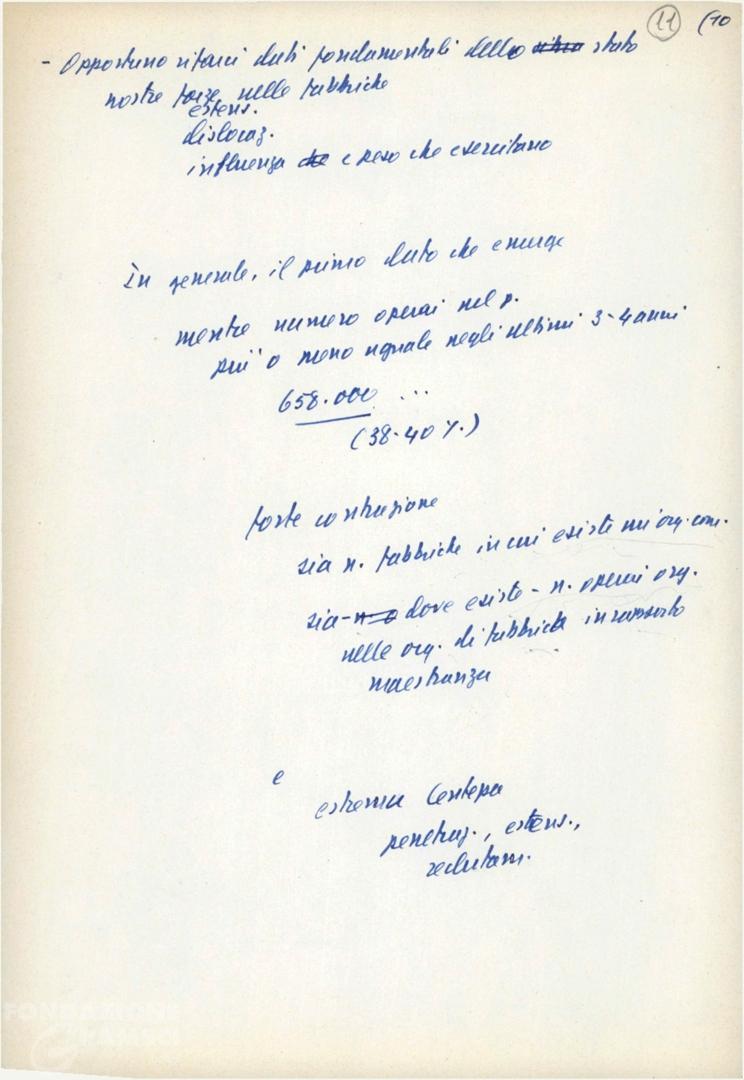 11 (10
- Opportuno rifarci dati fondamentali dello stato
nostre forze nelle fabbriche
estens.
dislocaz.
influenza che e peso che esercitano
In generale, il primo dato che emerge
mentre numero operai nel p.
più o meno uguale negli ultimi 3-4 anni
658.000 ...
(38-40 %)
forte contrazione
sia n. fabbriche in cui esiste org. com.
sia - n o dove esiste - n. operai org.
nelle org. di fabbrica in rapporto
maestranza
e
estrema lentezza
penetraz., estens.,
reclutam.
FONDAZIONE
GRAMSCI